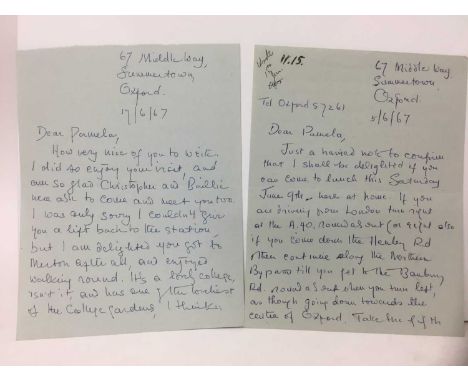 67 Middle Way,
Summertown,
Oxford.
17/6/67
Dear Pamela,
How very nice of you to write.
I did so enjoy your visit, and
am so glad Christopher and Baillie
were able to come and meet you too.
I was only sorry I couldn't give
you a lift back to the station,
but I am delighted you got to
Merton after all, and enjoyed
walking round. It's a lovely college,
isn't it, and has one of the loveliest
of the College gardens, I think.
11.15.
67 Middle Way
Summertown
Oxford.
Tel Oxford 57261
5/6/67
Dear Pamela,
Just a hurried note to confirm
that I shall be delighted if you
can come to lunch this Saturday
June 9th, here at home. If you
are driving from London turn right
at the A.40. roundabout (or right also
if you come down the Henley Rd
then continue along the Northern
Bypass till you get to the Banbury
Rd. roundabout when you turn left,
as though going down towards the
centre of Oxford. Take the fifth